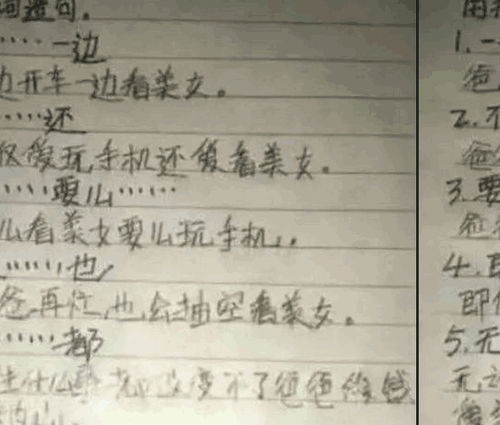 词造句。
……一边
边开车一边看美女。
……还
仅爱玩手机还爱看美女。
……要么……
么看美女要么玩手机。
……也
爸再忙,也会抽空看美女。
……都
都改变不了爸爸
用
1.一
爸
2.不
爸
3.要
爸
4.即
即使
5.无
无